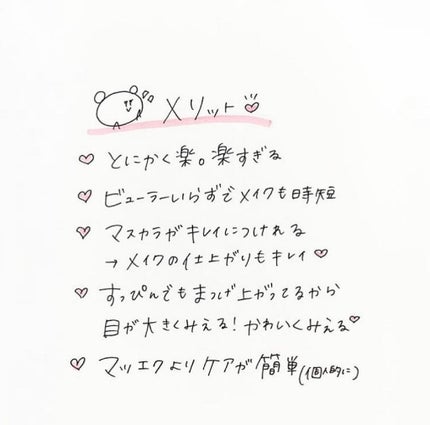 メリット
とにかく楽。楽すぎる
ビューラーいらずでメイクも時短
マスカラがキレイにつけれる
→メイクの仕上がりもキレイ
すっぴんでもまつげ上がってるから
目が大きくみえる!かわいくみえる
マツエクよりケアが簡単(個人的に)